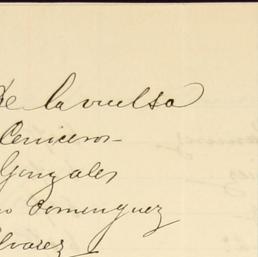 De la vuelta
Ceniceros
Gonzales
Dominguez
Alvarez